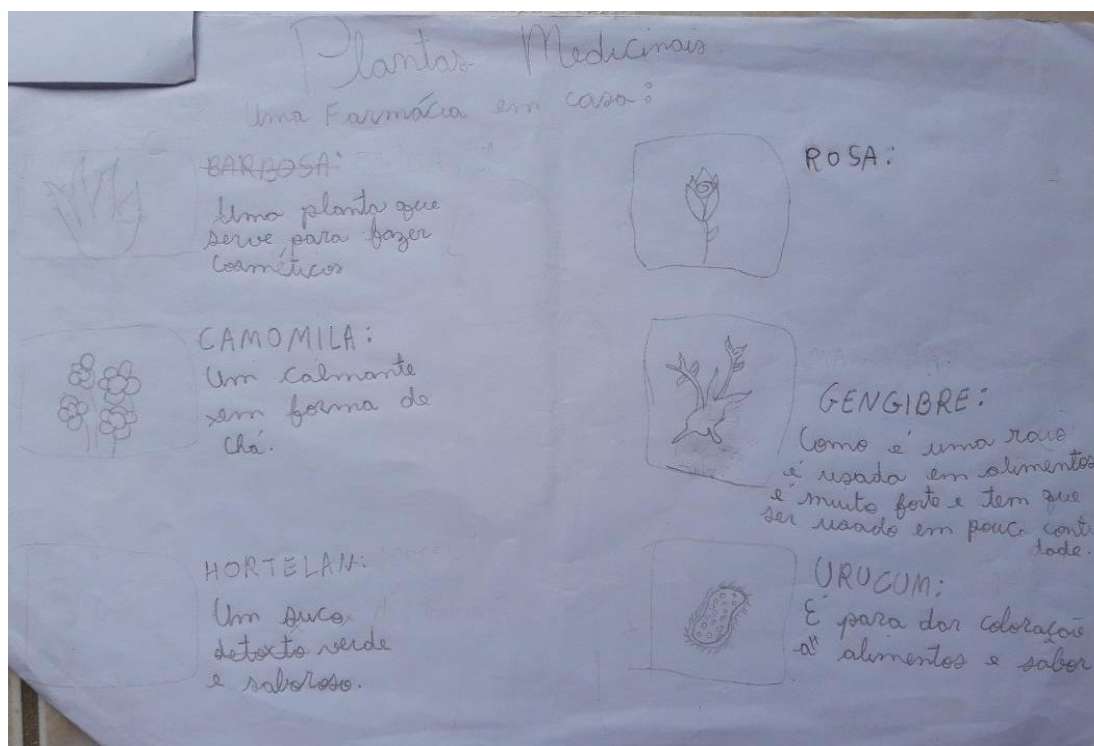 Plantas Medicinais
Uma Farmácia em casa:
BARBOSA:
Uma planta que
serve para fazer
Cosméticos
CAMOMILA:
Um calmante
em forma de
chá.
HORTELAN:
Um suco
verde
e saboroso.
ROSA:
GENGIBRE:
Como é uma rais
é usada em alimentos
e muito forte e tem que
ser usado em pouca conti
dade.
URUCUM:
É para dar coloração
a alimentos e sabor